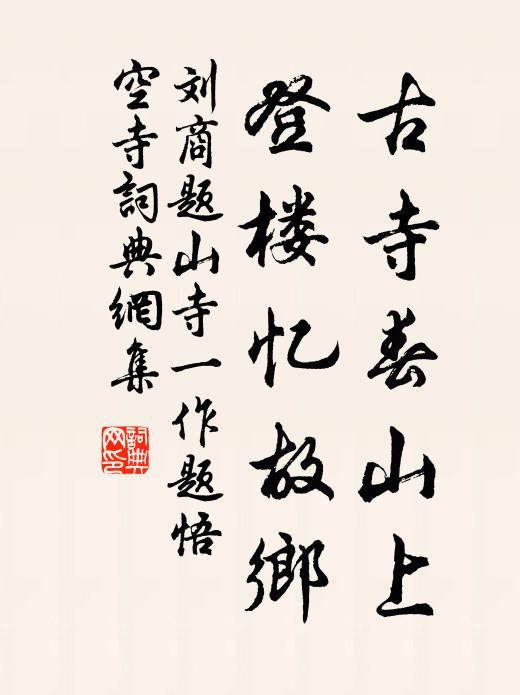 古寺春山上
登楼忆故鄉
刘商题山寺一作题悟
空寺詞典網集
詞典
网印